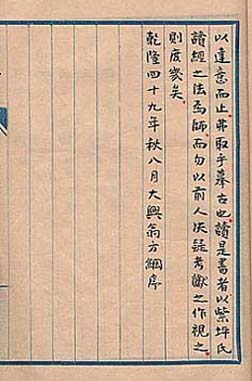 以達意而止非取乎摹古也讀是書者以紫坪氏
讀經之法為師而勿以前人決疑考獻之作視之
則庶幾矣
乾隆四十九年秋八月大興翁方綱序